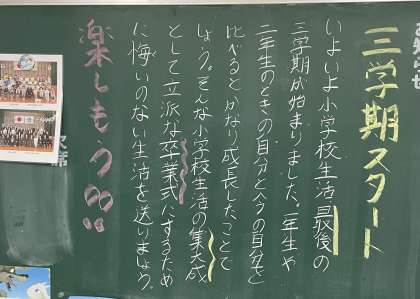 三学期スタート
いよいよ小学校生活最後の
三学期が始まりました。一年生や
二年生のときの自分と今の自分を
比べると、かなり成長したことで
しょう。そんな小学校生活の集大成
として立派な卒業式にするため
に悔いのない生活を送りましょう。
楽しもう
欠席